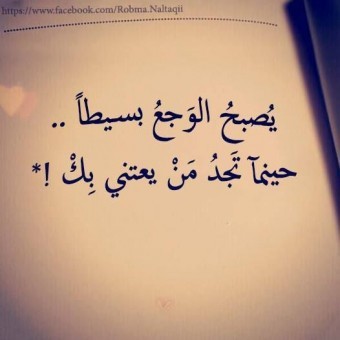 https://www.facebook.com/Robma.Naltaqii
يُصبحُ الوَجعُ بسيطاً ..
حينمآ تَجدُ مَنْ يعتني بِكْ !*